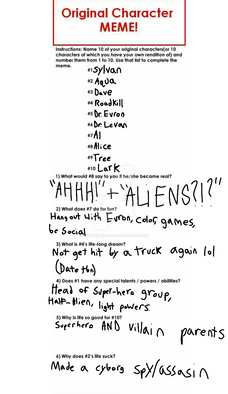 Original Character
MEME!
Instructions: Name 10 of your original characters(or 10
characters of which you have your own rendition of) and
number them from 1 to 10. Use that list to complete the
meme.
#1 Sylvan
#2 Aqua
#3 Dave
#4 Roadkill
#5 Dr. Evron
#6 Dr. Levan
#7 Al
#8 Alice
#9 Tree
#10 Lark
1) What would #8 say to you if he/she became real?
"AHHH!" + "ALIENS?!?"
2) What does #7 do for fun?
Hang out with Evron, color, games,
be Social
3) What is #4's life-long dream?
Not get hit by a truck again lol
(Date tho)
4) Does #1 have any special talents / powers / abilities?
Head of Super-hero group,
Half-Alien, light powers.
5) Why is life so good for #10?
Superhero AND villain parents
6) Why does #2's life suck?
Made a cyborg spy/assasin